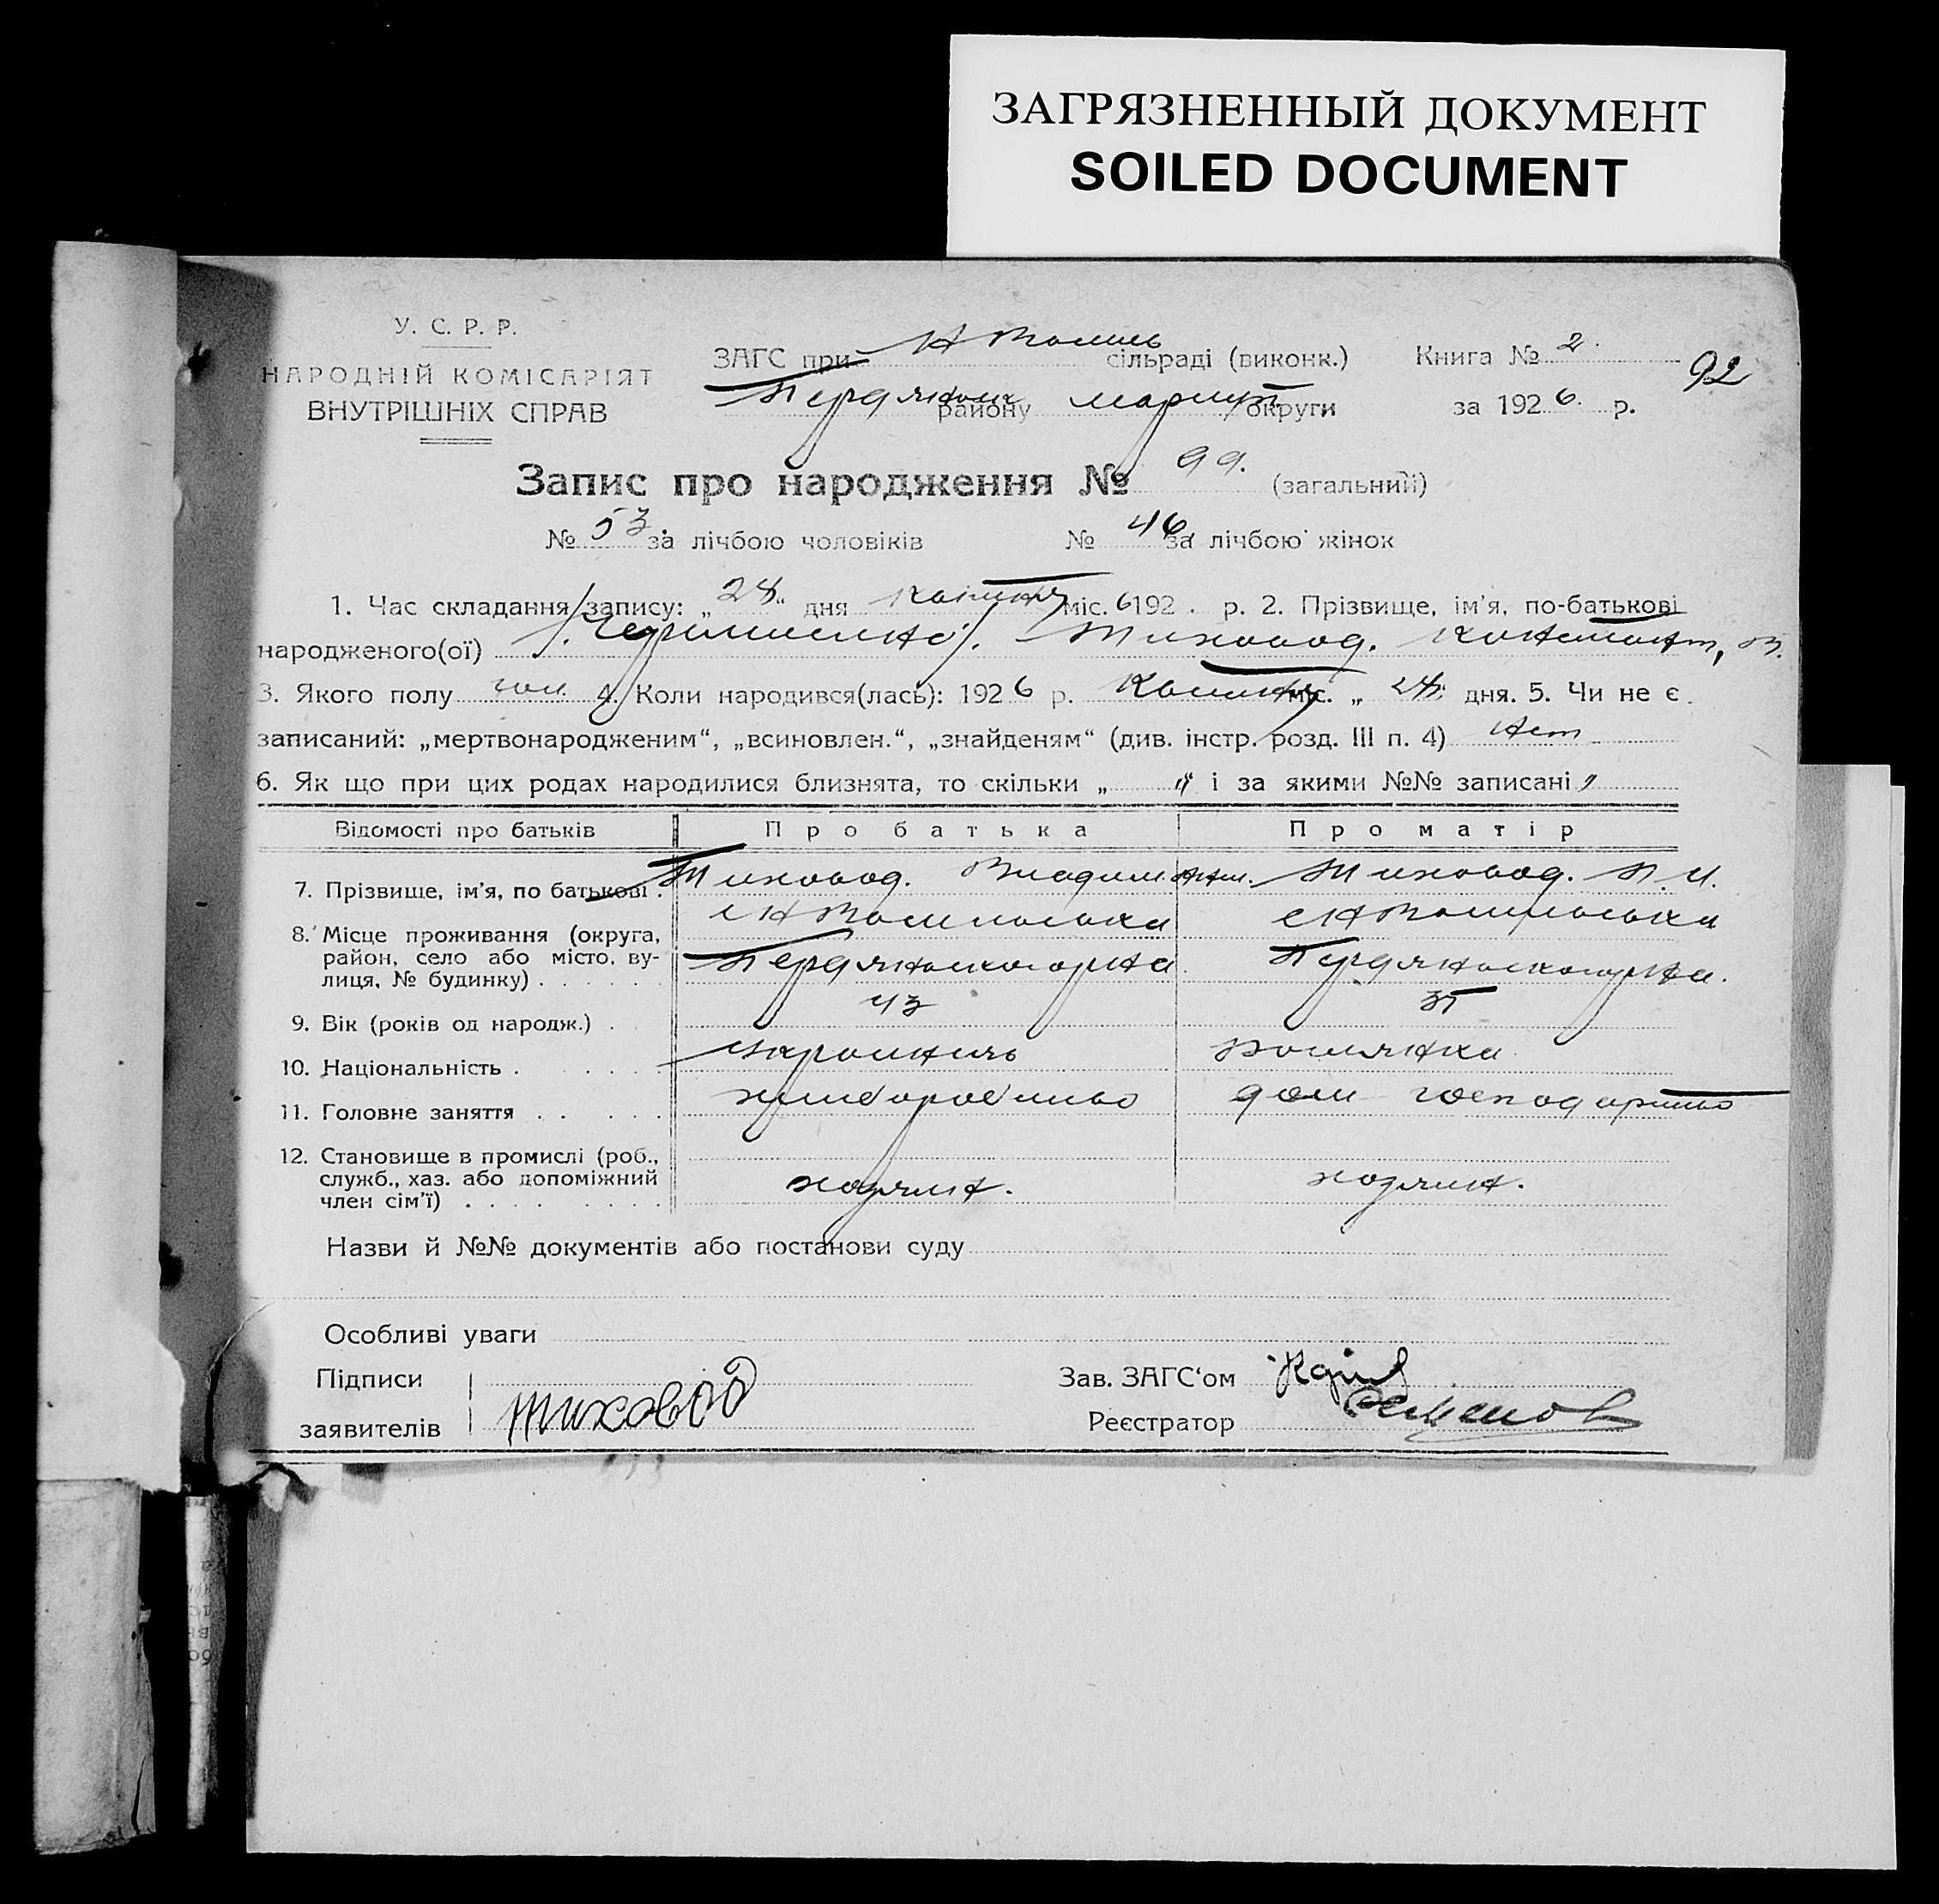 ЗАГРЯЗНЕННЫЙ ДОКУМЕНТ
SOILED DOCUMENT
У. С. Р. Р.
НАРОДНІЙ КОМІСАРІЯТ
ВНУТРІШНІХ СПРАВ
ЗАГС при сільраді (виконк.)
району Мариуп округи
Книга № 2.
за 1926 р.
92
Запис про народження № 99. (загальний)
№ 53 за лічбою чоловіків № 46 за лічбою жінок
1. Час складання запису: „28“ дня міс. 6192 . р. 2. Прізвище, ім’я, по-батькові
народженого(ої) Тиховод. Констант, В.
3. Якого полу чол. 4. Коли народився(лась): 1926 р. міс. „ дня. 5. Чи не є
записаний: „мертвонародженим“, „всиновлен.“, „знайденям“ (див. інстр. розд. III п. 4) Нет
6. Як що при цих родах народилися близнята, то скільки „ “ і за якими №№ записані
Відомості про батьків Про батька Про матір
7. Прізвище, ім’я, по батькові . Тиховод. Владим Тиховод. П. И.
8. Місце проживання (округа,
район, село або місто, ву-
лиця, № будинку) . . . . . .
9. Вік (років од народж.) . 43 35
10. Національність . . . . . .
11. Головне заняття . . . . . хлиборобство дом господарство
12. Становище в промислі (роб.,
служб., хаз. або допоміжний
член сім’ї) . . . . . . . . хозяин. хозяин.
Назви й №№ документів або постанови суду
Особливі уваги
Підписи
заявителів Тиховод
Зав. ЗАГС‘ом
Реєстратор